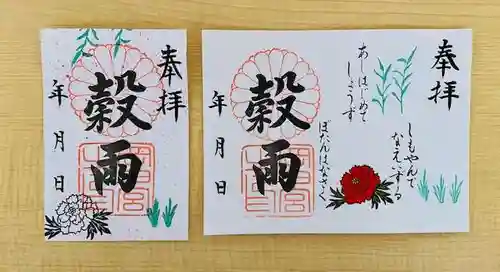 奉拝
穀雨
年月日
奉拝
しもやんで
なえいずる
あしはじめて
しょうず
ぼたんはなさく
穀雨
年月日